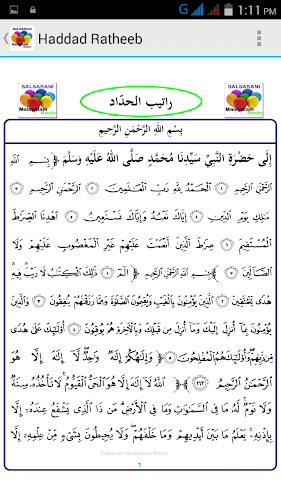 1:11 PM
Haddad Ratheeb
SALSARANI
Malayalam
Radio
راتيب الحدّاد
SALSARANI
Malayalam
Radio
بِسْمِ اللهِ الرَّحْمٰنِ الرَّحِيْمِ
إِلَى حَضْرَةِ النَّبِيِّ سَيِّدِنَا مُحَمَّدٍ صَلَّى اللهُ عَلَيْهِ وَسَلَّمَ ﴿ بِسْمِ اللهِ
الرَّحْمٰنِ الرَّحِيْمِ ۝١ الْحَمْدُ لِلّٰهِ رَبِّ الْعَالَمِيْنَ ۝٢ الرَّحْمٰنِ الرَّحِيْمِ ۝٣
مَالِكِ يَوْمِ الدِّيْنِ ۝٤ إِيَّاكَ نَعْبُدُ وَإِيَّاكَ نَسْتَعِيْنُ ۝٥ اهْدِنَا الصِّرَاطَ
الْمُسْتَقِيْمَ ۝٦ صِرَاطَ الَّذِيْنَ أَنْعَمْتَ عَلَيْهِمْ غَيْرِ الْمَغْضُوْبِ عَلَيْهِمْ وَلَا
الضَّالِّيْنَ ۝٧ ﴾ ﴿ بِسْمِ اللهِ الرَّحْمٰنِ الرَّحِيْمِ الٓمٓ ۝١ ذٰلِكَ الْكِتَابُ لَا رَيْبَ فِيْهِ
هُدًى لِلْمُتَّقِيْنَ ۝٢ الَّذِيْنَ يُؤْمِنُوْنَ بِالْغَيْبِ وَيُقِيْمُوْنَ الصَّلَاةَ وَمِمَّا رَزَقْنَاهُمْ يُنْفِقُوْنَ ۝٣ وَالَّذِيْنَ
يُؤْمِنُوْنَ بِمَا أُنْزِلَ إِلَيْكَ وَمَا أُنْزِلَ مِنْ قَبْلِكَ وَبِالْآخِرَةِ هُمْ يُوْقِنُوْنَ ۝٤ أُولٰئِكَ عَلَى هُدًى
مِنْ رَبِّهِمْ وَأُولٰئِكَ هُمُ الْمُفْلِحُوْنَ ۝٥ ﴾ ﴿ وَإِلٰهُكُمْ إِلٰهٌ وَاحِدٌ لَا إِلٰهَ إِلَّا هُوَ
الرَّحْمٰنُ الرَّحِيْمُ ۝١٦٣ ﴾ ﴿ اللهُ لَا إِلٰهَ إِلَّا هُوَ الْحَيُّ الْقَيُّوْمُ لَا تَأْخُذُهُ سِنَةٌ
وَلَا نَوْمٌ لَهُ مَا فِي السَّمَاوَاتِ وَمَا فِي الْأَرْضِ مَنْ ذَا الَّذِي يَشْفَعُ عِنْدَهُ إِلَّا
بِإِذْنِهِ يَعْلَمُ مَا بَيْنَ أَيْدِيْهِمْ وَمَا خَلْفَهُمْ وَلَا يُحِيْطُوْنَ بِشَيْءٍ مِنْ عِلْمِهِ إِلَّا
Salsarani Malayalam Radio
1